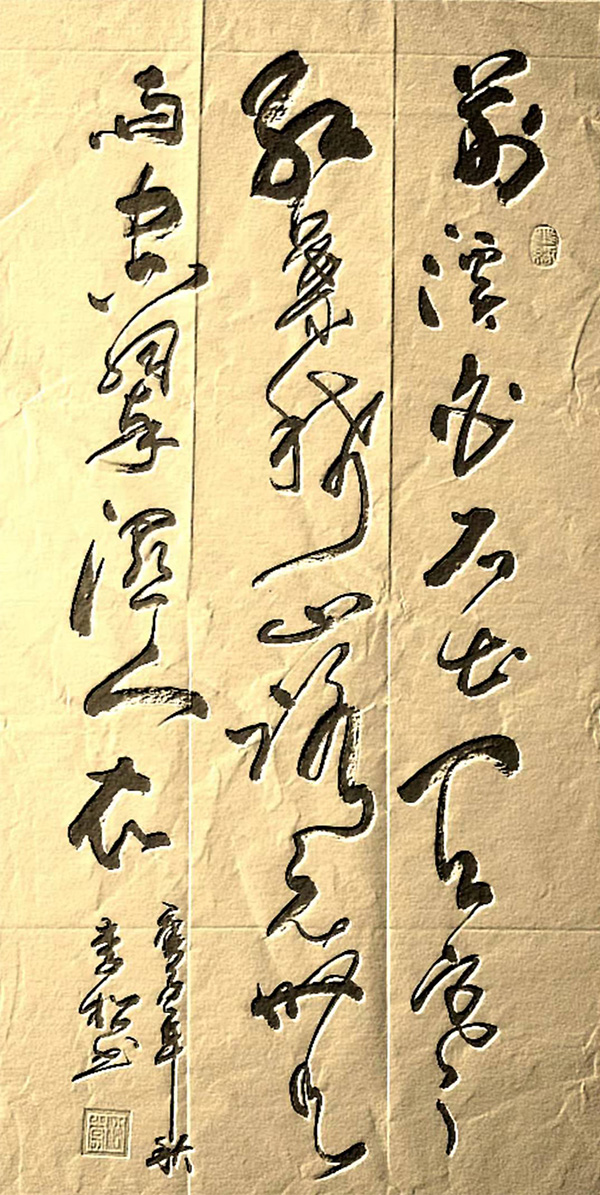 荆溪白石出天寒
红葉稀山路元無
雨空翠濕人衣
庚子年秋
李松书